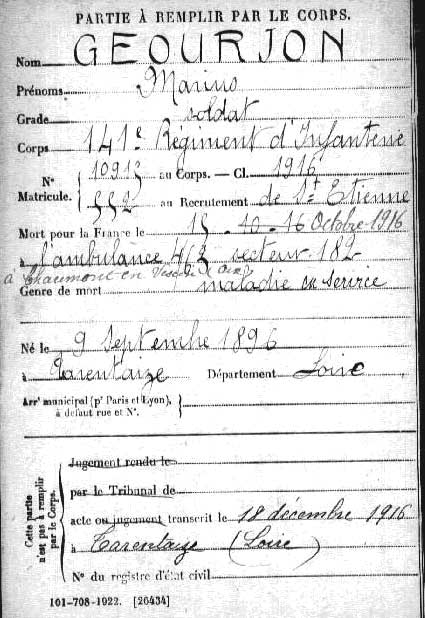 PARTIE À REMPLIR PAR LE CORPS.
Nom GEOURJON
Prénoms Marius
Grade soldat
Corps 141e Régiment d'Infanterie
N° Matricule. { 10913 au Corps. — Cl. 1916
552 au Recrutement de St Etienne
Mort pour la France le 15 - 10 - 16 Octobre 1916
à l'ambulance 4/62 secteur 182
à Chaumont en
Genre de mort maladie en service
Né le 9 Septembre 1896
à Tarentaize Département Loire
Arrt municipal (pr Paris et Lyon), à défaut rue et N°. }
Cette partie n'est pas à remplir par le Corps.
Jugement rendu le
par le Tribunal de
acte ou jugement transcrit le 18 décembre 1916
à Tarentaize (Loire)
N° du registre d'état civil
101-708-1922. [26434]